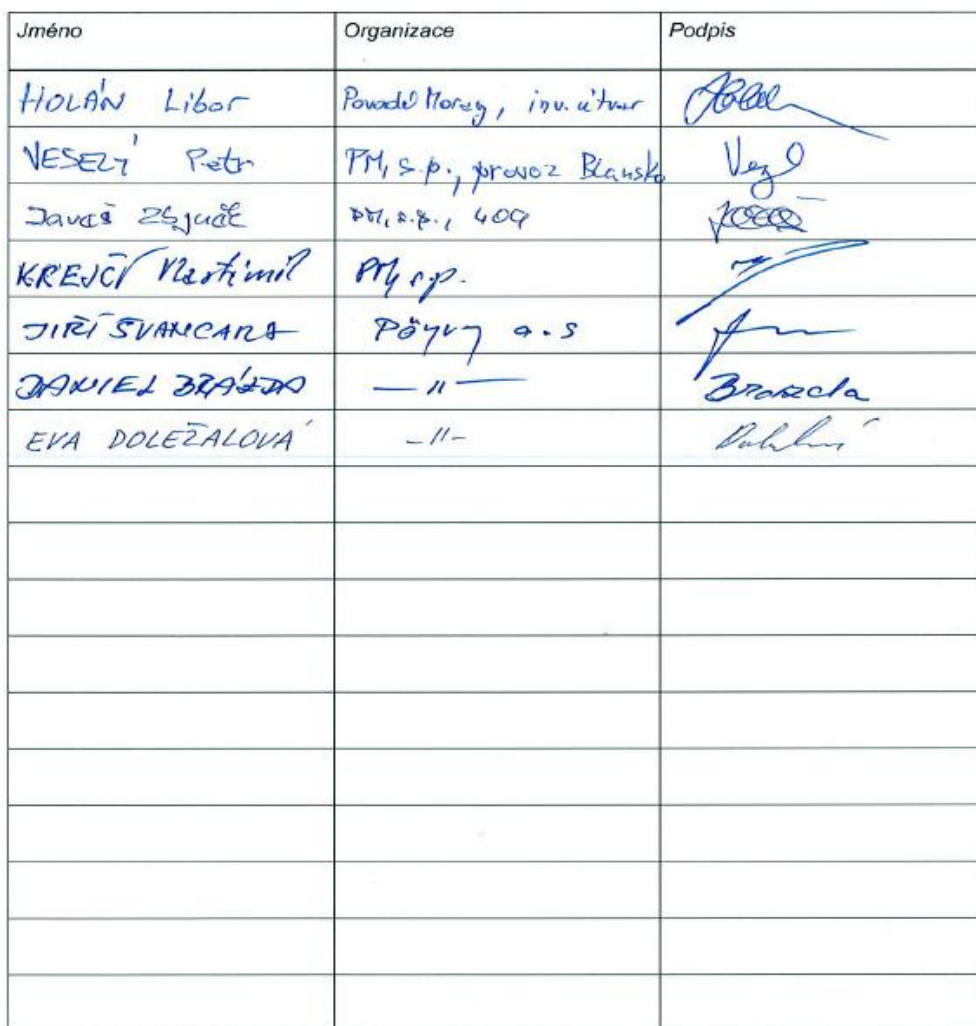 Jméno Organizace Podpis
HOLÁN Libor Povodí Moravy, inv. útvar
VESELÝ Petr PM, s.p., provoz Blansko
PM, s.p., 409
KREJČÍ Vlastimil PM, s.p.
JIŘÍ ŠVANCARA Pöyry a.s
DANIEL BRÁZDA —"— Brazda
EVA DOLEŽALOVÁ -"-